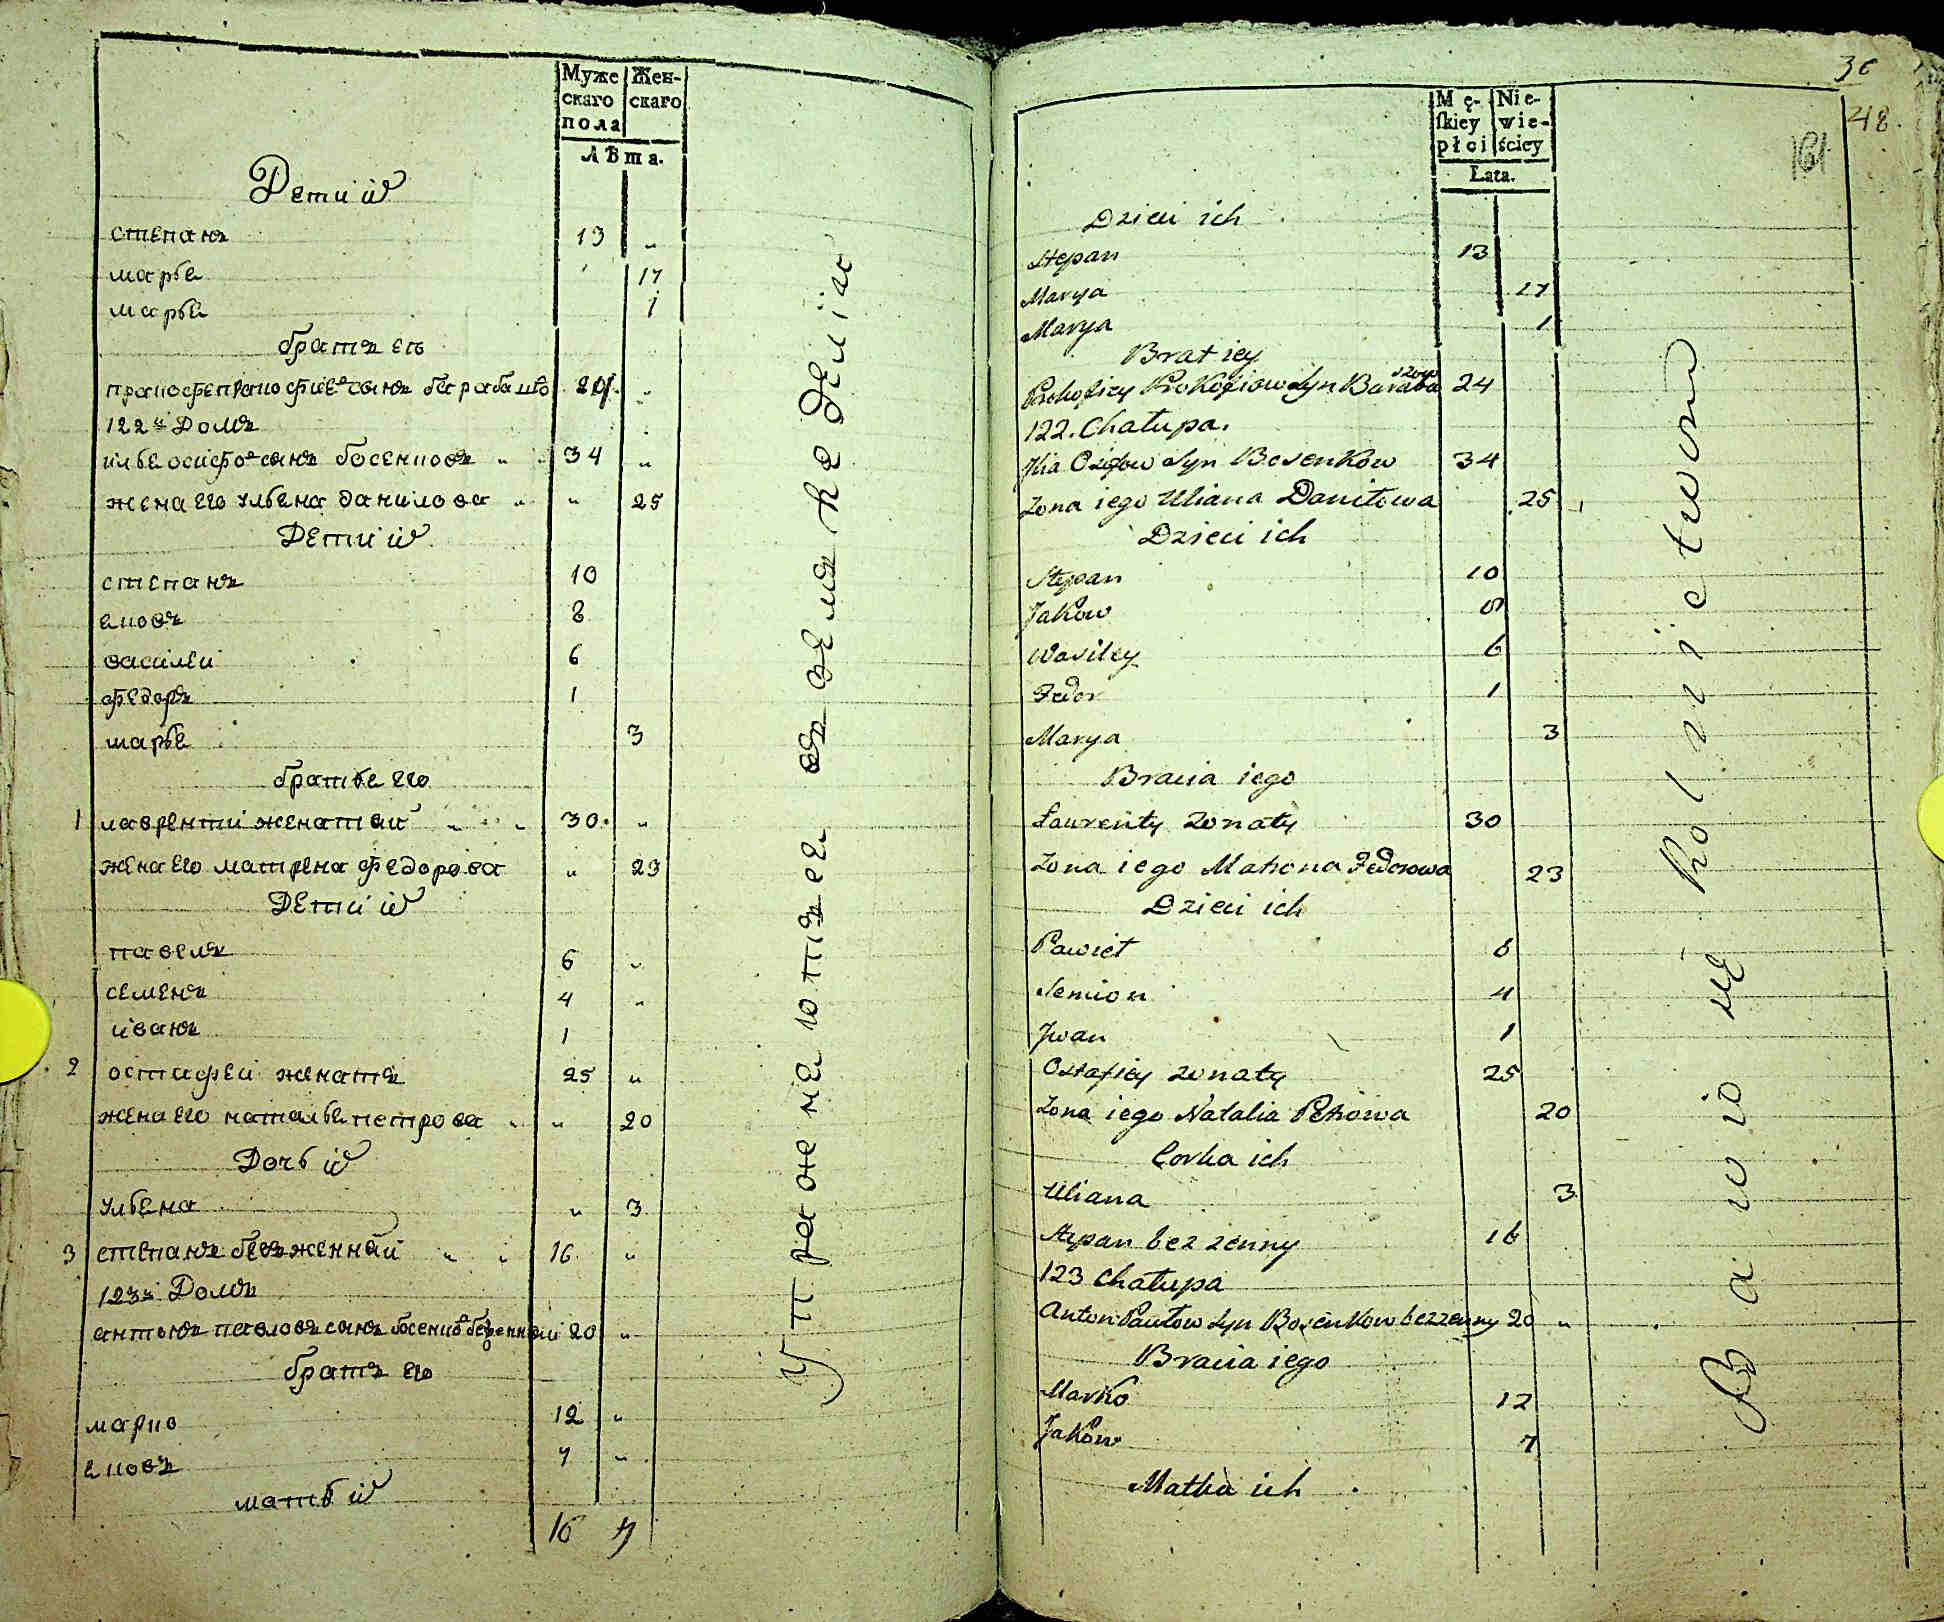 Муже Жен-
скаго скаго
пола
Лѣта.
Дети ихъ
степанъ 13 „
марья 17
марья 1
братъ еѣ
прокофей прокофиевъ сынъ барабашо 24 „
122й Домъ
илья осифовъ сынъ босенковъ „ 34 „
жена его ульяна данилова „ „ 25
Дети ихъ
степанъ 10
яковъ 8
василей 6
федоръ 1
марья 3
братья его
1 лаврентий женатый „ „ 30 „
жена его матрена федорова „ 23
Дети ихъ
павелъ 6 „
семенъ 4 „
иванъ 1
2 остафей женатъ 25 „
жена его наталья петрова „ „ 20
Дочь ихъ
ульяна „ 3
3 степанъ безженный „ „ 16 „
123й Домъ
антонъ павловъ сынъ босенковъ безженный 20 „
братъ его
марко 12 „
яковъ 7 „
мать ихъ
16 7
Упражнеютъца въ земледелие
36
48
161
Mę- Nie-
ſkiey wie-
płci ściey
Lata.
Dzieci ich
Stepan 13
Marya 17
Marya 1
Brat iey
Prokofiey Prokofiow Syn Barabaszow 24
122. Chałupa.
Jlia Osifow Syn Bosenkow 34
Zona iego Uliana Daniłowa 25
Dzieci ich
Stepan 10
Jakow 8
Wasiley 6
Fedor 1
Marya 3
Bracia iego
Ławrenty zonaty 30
Zona iego Matrona Fedorowa 23
Dzieci ich
Pawieł 6
Semion 4
Jwan 1
Ostafiey zonaty 25
Zona iego Natalia Petrowa 20
Corka ich
Uliana 3
Stepan bez zenny 16
123 Chałupa
Anton Pawłow Syn Bosenkow bezzenny 20 „
Bracia iego
Marko 12
Jakow 7
Matka ich
Bawio się Rolnictwem